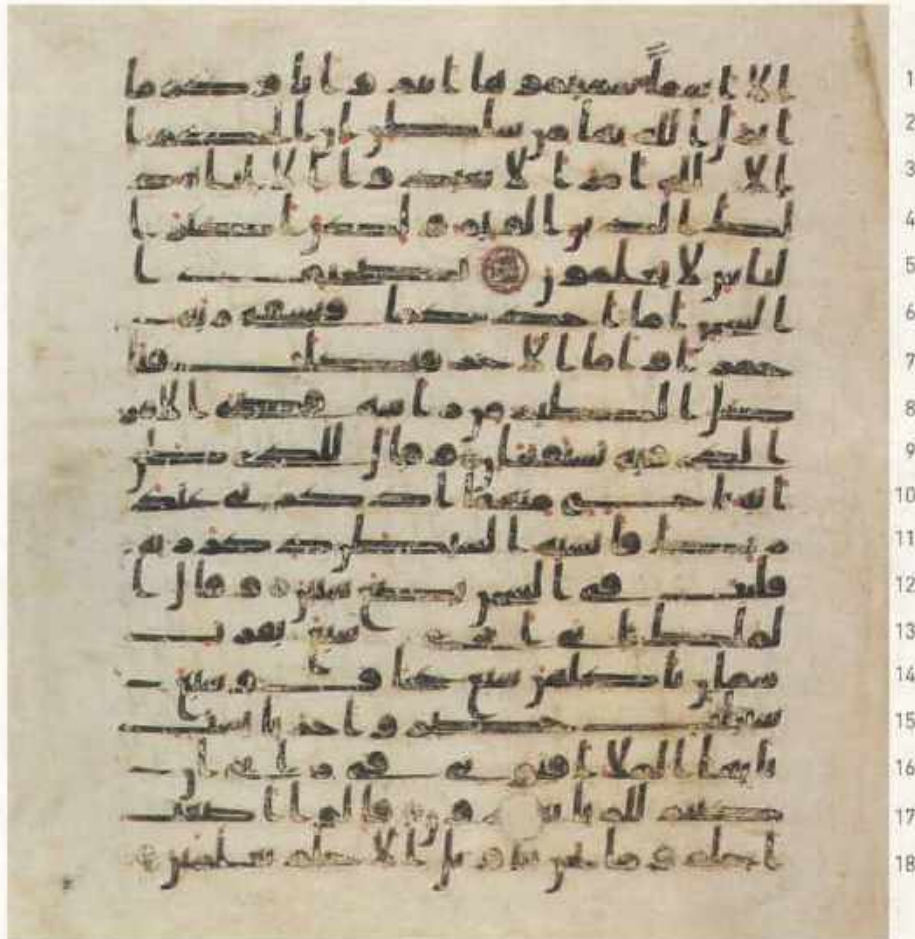 الا اسما سميتموها انتم واباوكم ما 1
انزل الله بها من سلطن ان الحكم ا 2
لا لله امر الا تعبدوا الا اياه ذ 3
لك الدين القيم ولكن اكثر ا 4
لناس لا يعلمون يصحبي ا 5
لسجن اما احدكما فيسقي ربه 6
خمرا واما الاخر فيصلب فتا 7
كل الطير من راسه قضي الامر 8
الذي فيه تستفتين وقال للذي ظن 9
انه ناج منهما اذكرني عند 10
ربك فانسيه الشيطن ذكر ربه 11
فلبث في السجن بضع سنين وقال ا 12
لملك اني ارى سبع بقرت 13
سمان ياكلهن سبع عجاف وسبع 14
سنبلت خضر واخر يابست 15
يايها الملا افتوني في رياي ان 16
كنتم للريا تعبرون قالوا اضغث 17
احلم وما نحن بتاويل الاحلم بعلمين 18